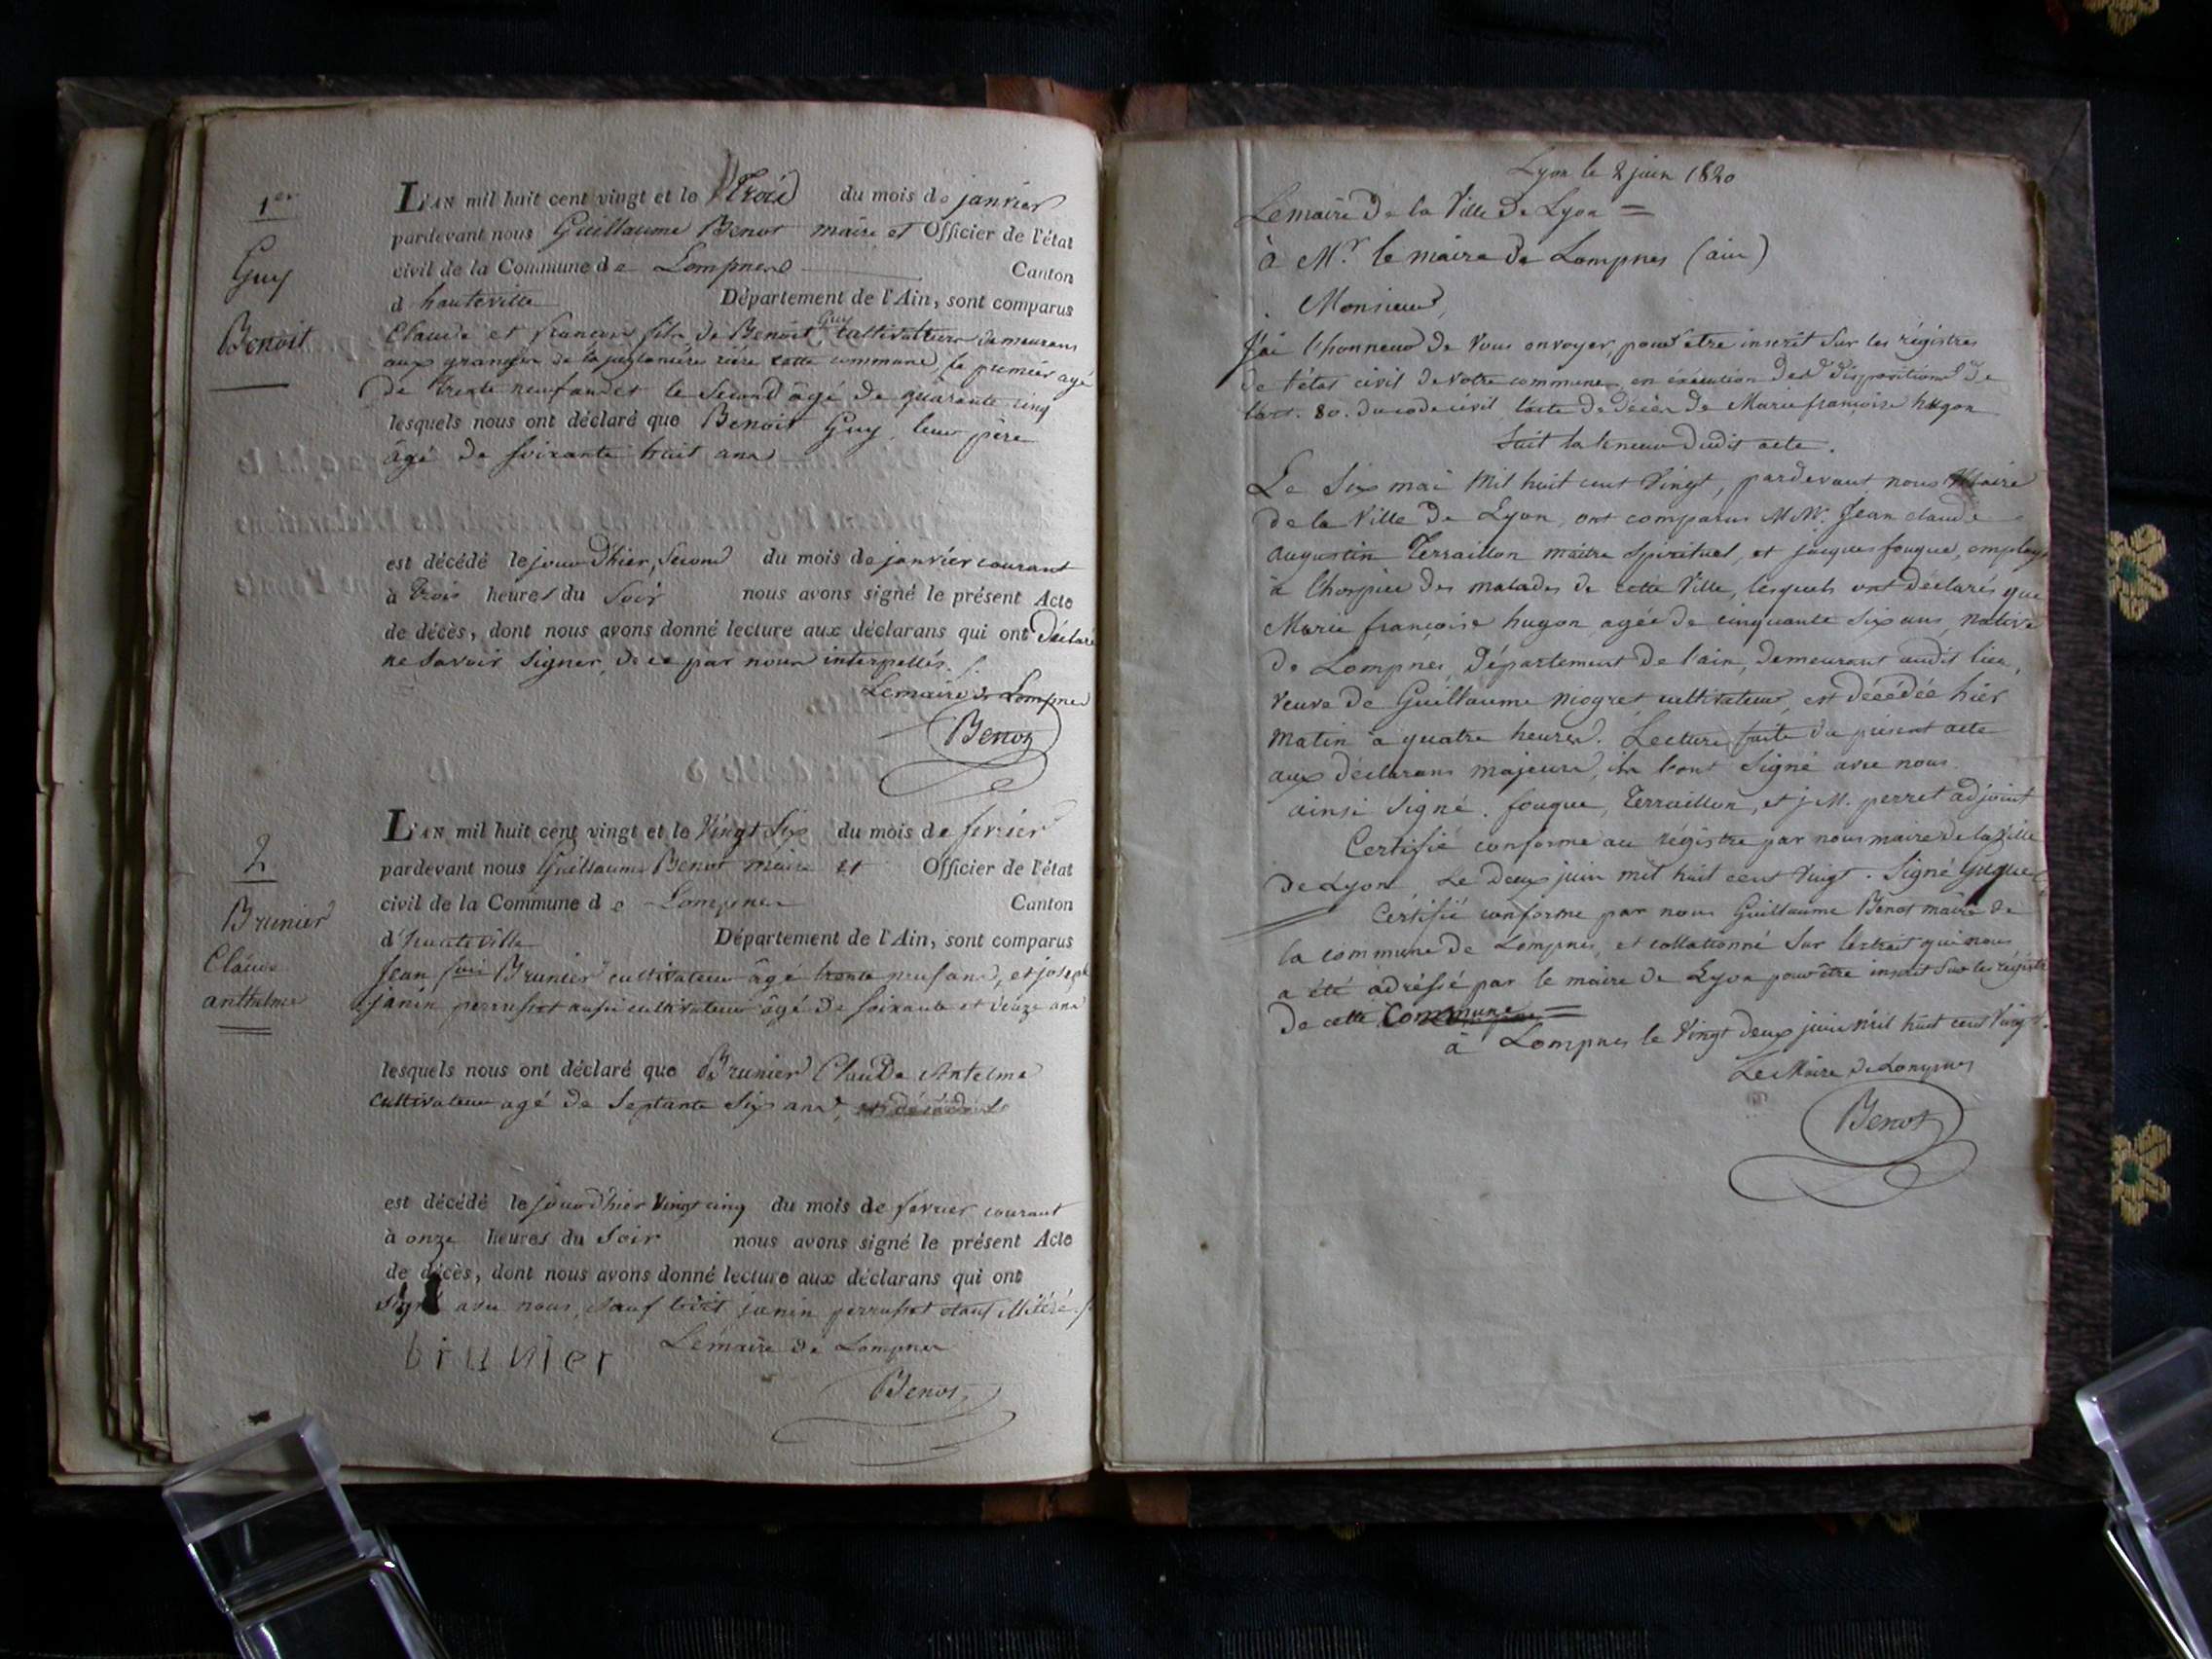 1er
Guy
Benoit
L'AN mil huit cent vingt et le Trois du mois de janvier
pardevant nous Guillaume Benot maire et Officier de l'état
civil de la Commune de Lompnes Canton
d hauteville Département de l'Ain, sont comparus
Claude et françois fils de Benoit Guy Cultivateurs demeurans
aux granges de la rière cette commune, le premier agé
de trente neuf ans et le second âgé de quarante cinq
lesquels nous ont déclaré que Benoit Guy leur père
âgé de soixante huit ans
est décédé le jour d'hier, second du mois de janvier courant
à trois heures du Soir nous avons signé le présent Acte
de décès, dont nous avons donné lecture aux déclarans qui ont déclaré
ne savoir signer, de ce par nous interpellés.
Lemaire de Lompnes
Benot
2
Brunier
Claude
anthelme
L'AN mil huit cent vingt et le Vingt Six du mois de fevrier
pardevant nous Guillaume Benot maire et Officier de l'état
civil de la Commune de Lompnes Canton
d'hauteville Département de l'Ain, sont comparus
Jean Brunier cultivateur âgé trente neuf ans, et joseph
janin perrusset aussi cultivateur âgé de soixante et douze ans
lesquels nous ont déclaré que Brunier Claude Antelme
cultivateur agé de Septante Six ans,
est décédé le jour d'hier Vingt cinq du mois de fevrier courant
à onze heures du Soir nous avons signé le présent Acte
de décès, dont nous avons donné lecture aux déclarans qui ont
signé avec nous, sauf ledit janin perrusset étant illitéré
brunier Lemaire de Lompnes
Benot
Lyon le 2 juin 1820
Lemaire de la Ville de Lyon =
à Mr. le maire de Lompnes (ain)
Monsieur,
J'ai l'honneur de Vous envoyer, pour être inscrit sur les régistres
de l'état civil de votre commune, en éxécution des dispositions de
l'art. 80. du code civil l'acte de décès de Marie françoise hugon
Suit la teneur dudit acte.
Le Six mai Mil huit cent Vingt, pardevant nous Maire
de la Ville de Lyon, ont comparus MM. Jean claude
augustin Terraillon maitre Spirituel, et jacques fouque, employé
à l'hospice des malades de cette Ville, lesquels ont déclarés que
Marie françoise hugon agée de cinquante six ans, native
de Lompnes, Département de l'ain, demeurant audit lieu,
veuve de Guillaume niogret cultivateur, est décédée hier
matin à quatre heures. Lecture faite du présent acte
aux déclarans majeurs, ils l'ont signé avec nous.
ainsi signé. fouque, Terraillon, et j M. perret adjoint
Certifié conforme au régistre par nous maire de la Ville
de Lyon, Le deux juin mil huit cent Vingt. Signé
Certifié conforme par nous Guillaume Benot maire de
la commune de Lompnes, et collationné sur l'extrait qui nous
a été adréssé par le maire de Lyon pour être inscrit sur les régistres
de cette Commune =
à Lompnes le Vingt deux juin mil huit cent Vingt.
Le Maire de Lompnes
Benot